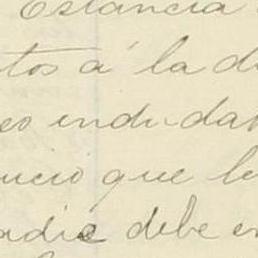 Estancia
tos á la d
es indudab
ucio que le
adie debe en